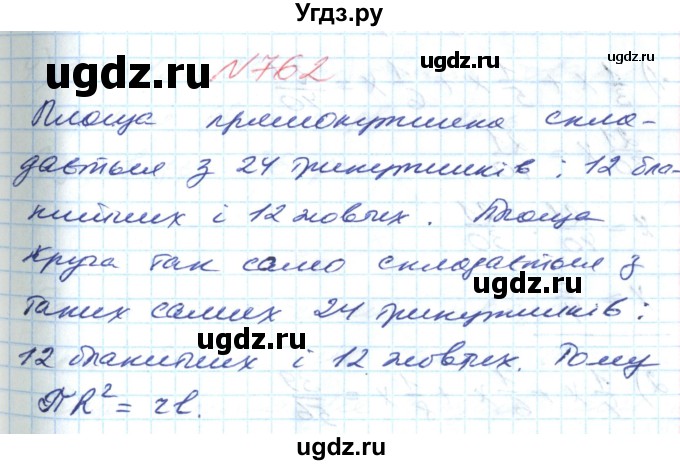 Угдз.ру
ugdz.ru ugdz.ru
N762
Площа прямокутника скла-
дається з 24 трикутників: 12 бла-
ugdz.ru
китних і 12 жовтих. Площа
круга так само складається з
ugdz.ru
таких самих 24 трикутників:
ugdz.ru
12 блакитних і 12 жовтих. Тому
πR² = rl.
ugdz.ru
ugdz.ru